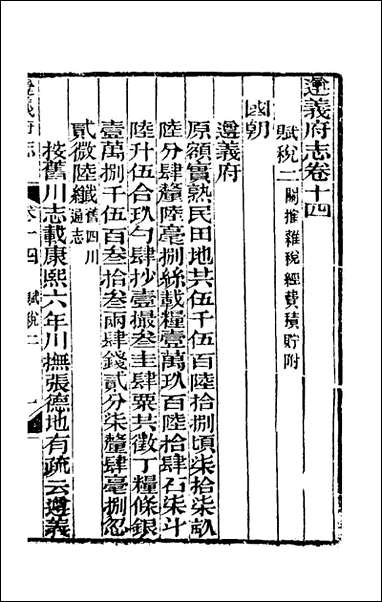 遵義府志卷十四
賦稅二 關榷雜稅經費積貯附
國朝
遵義府
原額實熟民田地共伍千伍百陸拾捌頃柒拾柒畝
陸分肆釐陸毫捌絲載糧壹萬玖百陸拾肆石柒斗
陸升伍合玖勺肆抄壹撮叁圭肆粟共徵丁糧條銀
壹萬捌千伍百叁拾叁兩肆錢貳分柒釐肆毫捌忽
貳微陸纖 舊四川通志
按舊川志載康熙六年川撫張德地有疏云遵義
遵義府志
卷十四 賦稅二 一